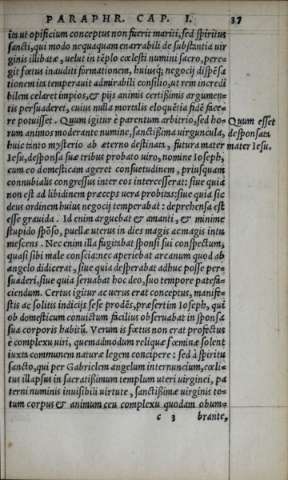 PARAPHR. CAP. I. 37
ius ut opificium conceptus non fuerit mariti, sed spiritus
sancti, qui modo nequaquam enarrabili de substantia uir
ginis illibatæ, uelut in tēplo cœlesti numini sacro, perea
git fœtus inauditi formationem, huiusq; negocij dispēsa
tionem ita temperauit admirabili consilio, ut rem incredi
bilem celaret impios, & pijs animis certissimis argumen-
tis persuaderet, cuius nulla mortalis eloquētia fidē face-
re potuisset. Quum igitur è parentum arbitrio, sed ho-
rum animos moderante numine, sanctissima uirguncula,
huic tanto mysterio ab æterno destinata, futura mater
Iesu, desponsa suæ tribus probato uiro, nomine Ioseph,
cum eo domesticam ageret consuetudinem, priusquam
connubialis congressus inter eos intercesserat: siue quia
non est ad libidinem præceps uera probitas: siue quia sic
deus ordinem huius negocij temperabat: deprehensa est
esse grauida. Id enim arguebat & amanti, & minime
stupido spōso, puellæ uterus in dies magis ac magis intu
mescens. Nec enim illa fugitabat sponsi sui conspectum,
quasi sibi male conscia: nec aperiebat arcanum quod ab
angelo didicerat, siue quia desperabat adhuc posse per-
suaderi, siue quia seruabat hoc deo, suo tempore patefa-
ciendum. Certus igitur ac uerus erat conceptus, manife-
stis ac solitis indicijs sese prodēs, præsertim Ioseph, qui
ob domesticum conuictum facilius obseruabat in sponsa
sua corporis habitū. Verum is fœtus non erat profectus
è complexu uiri, quemadmodum reliquæ fœminæ solent
iuxta communem naturæ legem concipere: sed à spiritu
sancto, qui per Gabrielem angelum internuncium, cœli-
tus illapsus in sacratissimum templum uteri uirginei, pa
terni numinis inuisibili uirtute, sanctissimæ uirginis to-
tum corpus & animum ceu complexu quodam obum-
c 3 brante,
Quum esset
desponsata
mater Iesu.